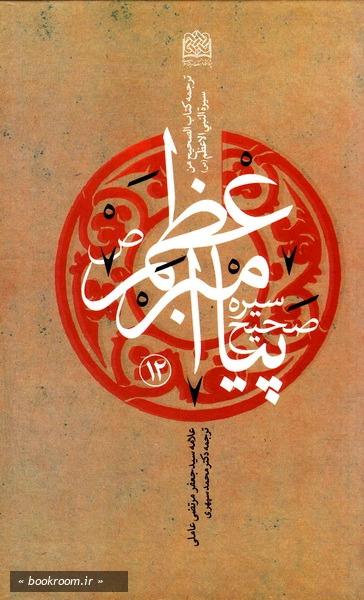 ترجمه کتاب الصحیح من
سیرة النبي الاعظم (ص)
سیره
صحیح
پیامبر
اعظم
ص
۱۲
علامه سید جعفر مرتضی عاملی
ترجمه دکتر محمد سپهری
« bookroom.ir »